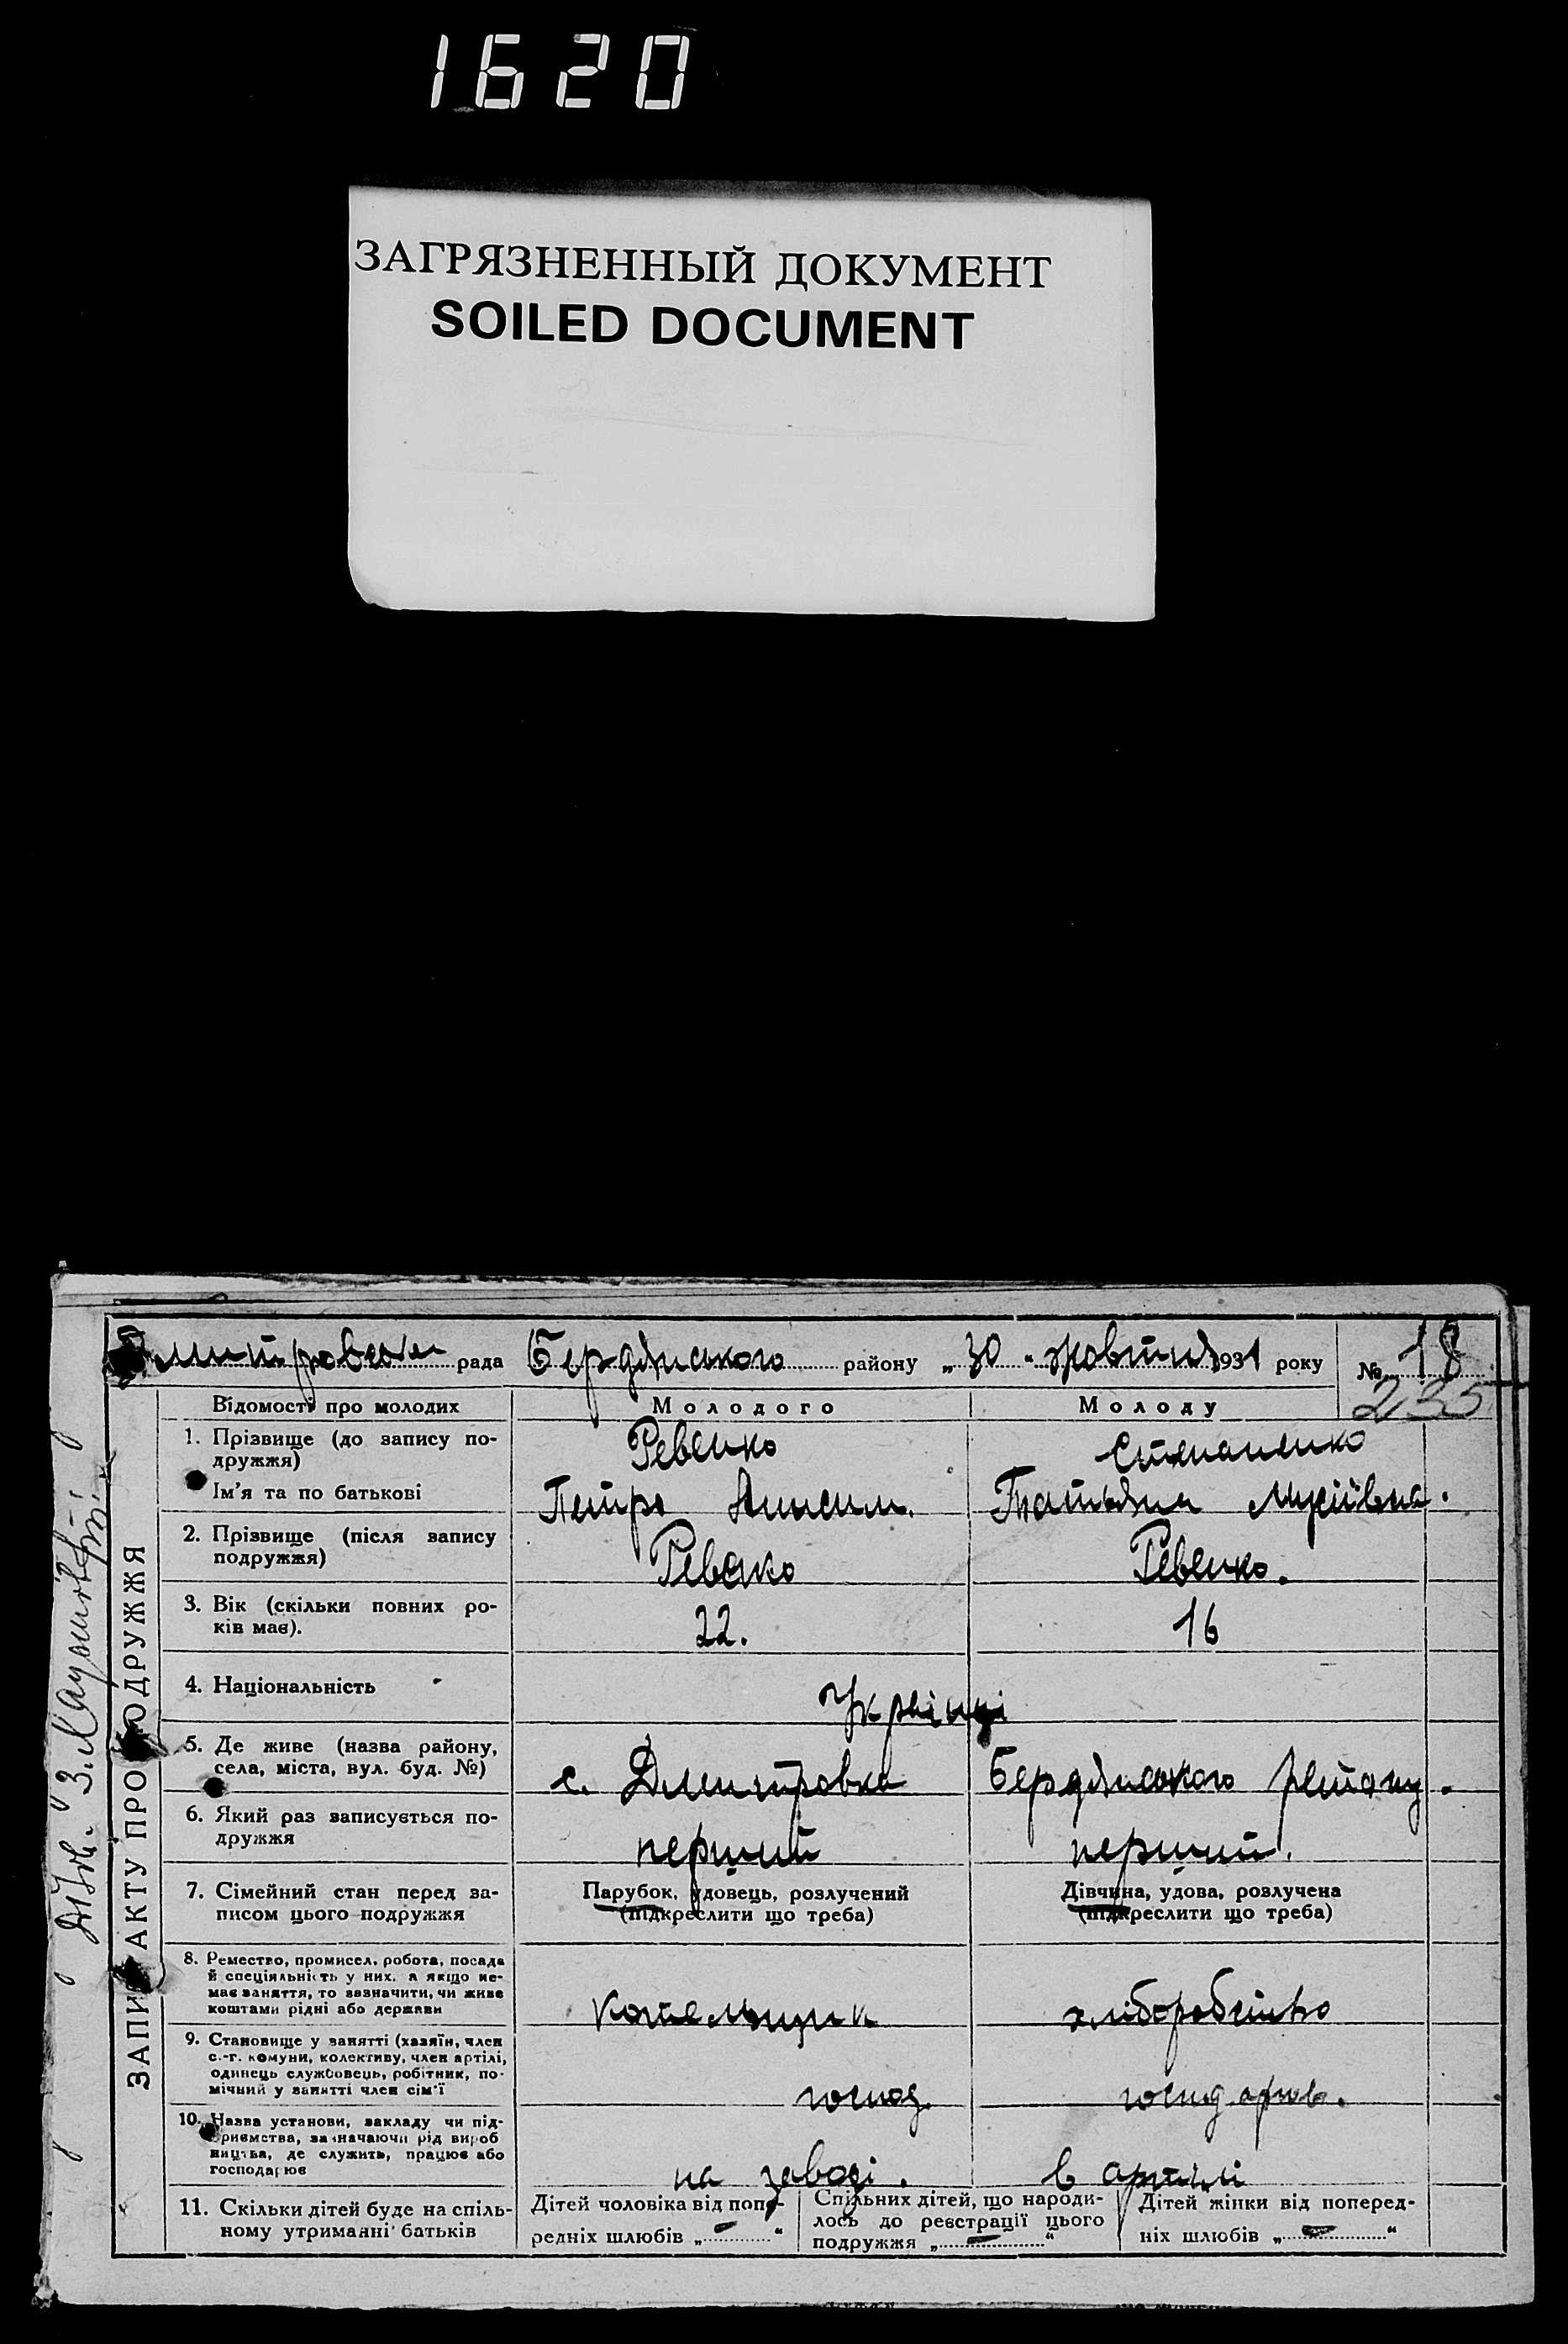 1620
ЗАГРЯЗНЕННЫЙ ДОКУМЕНТ
SOILED DOCUMENT
рада Бердянського району „30“ жовтня 1931 року № 18
235
ЗАПИС АКТУ ПРО ПОДРУЖЖЯ
Відомості про молодих Молодого Молоду
1. Прізвище (до запису по-
дружжя) Ревенко Степаненко
Ім'я та по батькові Петро Анисим. Татьяна Мусіївна.
2. Прізвище (після запису
подружжя) Ревенко Ревенко.
3. Вік (скільки повних ро-
ків має). 22. 16
4. Національність Украінці
5. Де живе (назва району,
села, міста, вул. буд. №) с. Дмитровка Бердянського району.
6. Який раз записується по-
дружжя перший перший.
7. Сімейний стан перед за-
писом цього подружжя
Парубок, удовець, розлучений
(підкреслити що треба)
Дівчина, удова, розлучена
(підкреслити що треба)
8. Ремество, промисел, робота, посада
й спеціяльність у них, а якщо не-
має заняття, то зазначити, чи живе
коштами рідні або держави
котельщик хліборобство
9. Становище у занятті (хазяїн, член
с.-г. комуни, колективу, член артілі,
одинець службовець, робітник, по-
мічний у занятті член сім'ї
господ.
10. Назва установи, закладу чи під-
приємства, зазначаючи рід вироб
ництва, де служить, працює або
господарює
на заводі. в артілі
11. Скільки дітей буде на спіль-
ному утриманні батьків
Дітей чоловіка від попе-
редніх шлюбів „ — “
Спільних дітей, що народи-
лось до реєстрації цього
подружжя „ — “
Дітей жінки від поперед-
ніх шлюбів „ — “